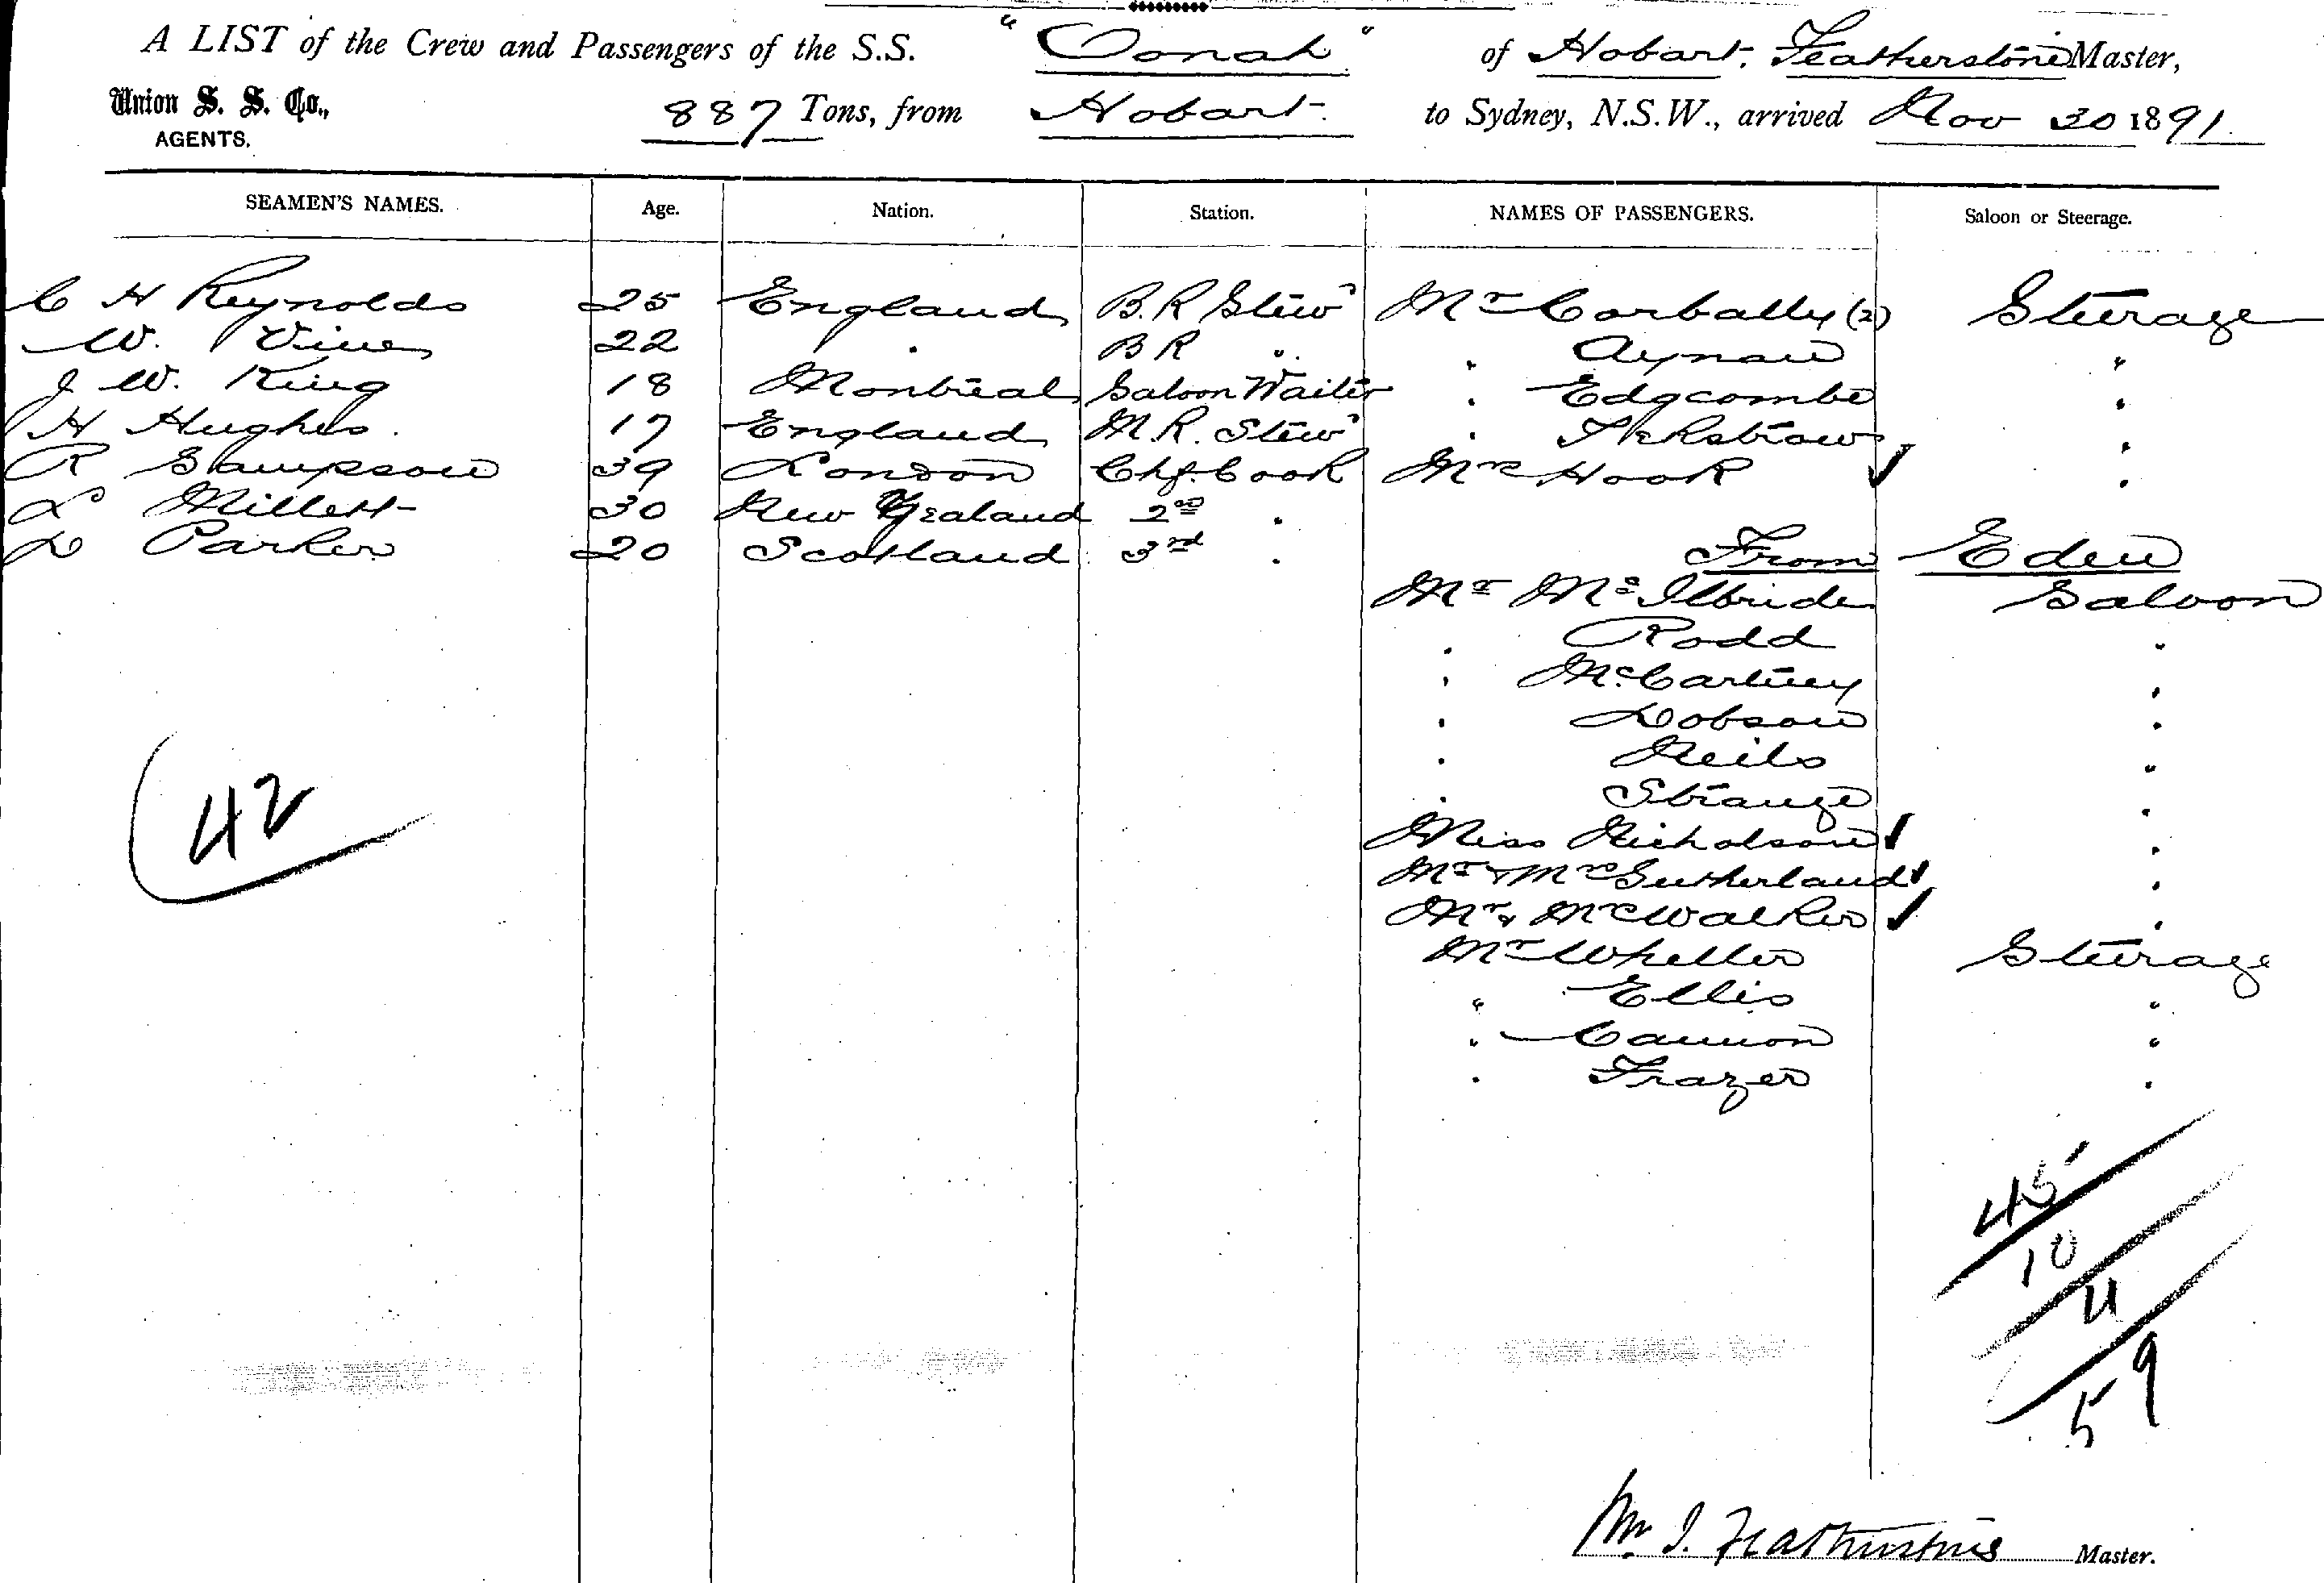 A LIST of the Crew and Passengers of the S.S. "Oonah" of Hobart, Featherstone Master,
Union S. S. Co., 887 Tons, from Hobart. to Sydney, N.S.W., arrived Nov 30 1891.
AGENTS.
SEAMEN'S NAMES. Age. Nation. Station. NAMES OF PASSENGERS. Saloon or Steerage.
C H Reynolds 25 England B.R Stew' Mr Corbally (2) Steerage
W. Vines 22 " B R " " Aynaw "
J W. King 18 Montreal Saloon Waiter " Edgcombe "
H Hughes. 17 England M.R. Stew' " "
R Sampson 39 London Chf. Cook Mrs Hook ✓ "
L Millett 30 New Zealand 2nd "
D Parker 20 Scotland 3rd " From Eden
Mr McIlbride Saloon
" Rodd "
" McCartney "
" Dobson "
" Neils "
" Strange "
42
Miss Nicholson ✓ "
Mr & Mrs Sutherland ✓ "
Mr & Mrs Walker ✓ "
Mr Wheller Steerage
" Ellis "
" Cannon "
" Frazer "
45
10
4
59
Wm. J. Featherstone Master.